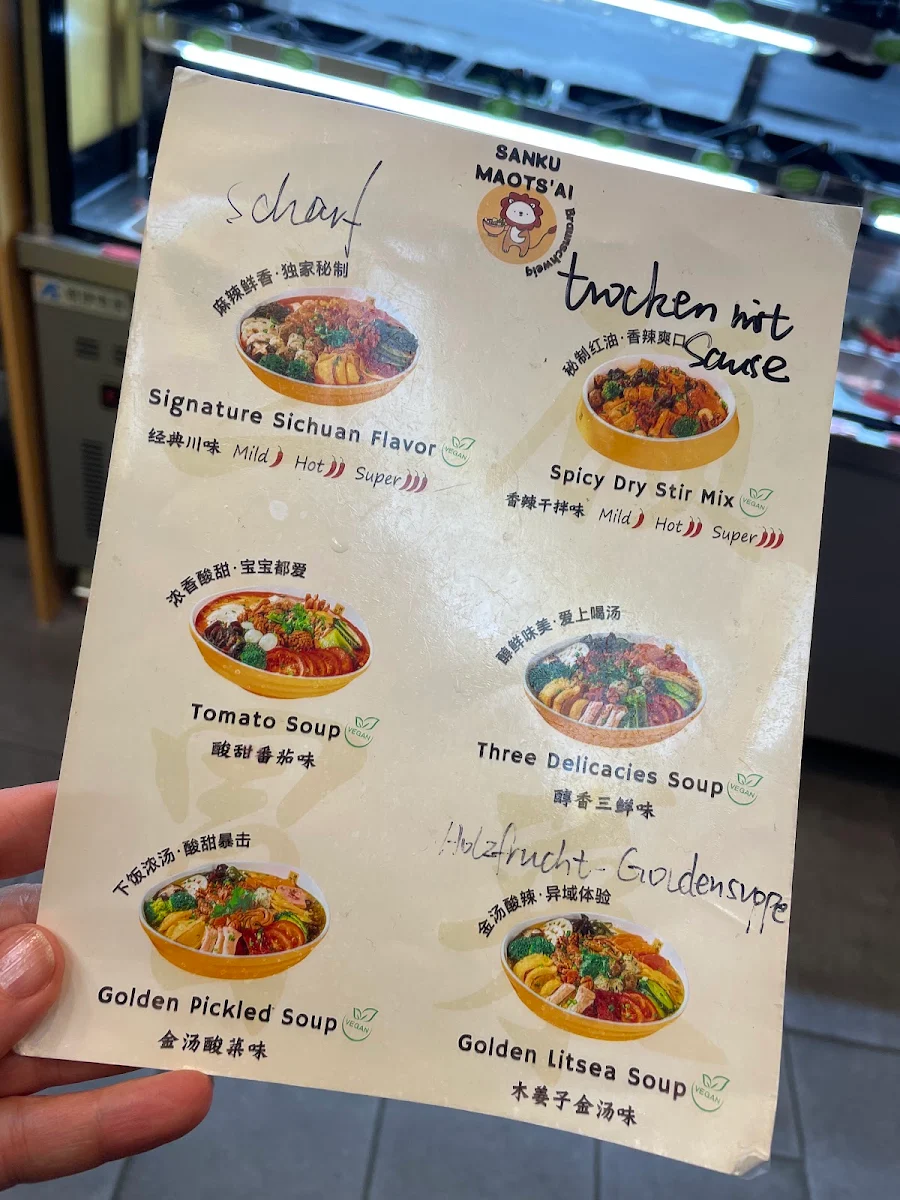 SANKU
MAOTS'AI
Braunschweig
scharf
麻辣鲜香·独家秘制
Signature Sichuan Flavor VEGAN
经典川味 Mild Hot Super
trocken mit
Sause
秘制红油·香辣爽口
Spicy Dry Stir Mix VEGAN
香辣干拌味 Mild Hot Super
浓香酸甜·宝宝都爱
Tomato Soup VEGAN
酸甜番茄味
醇鲜味美·爱上喝汤
Three Delicacies Soup VEGAN
醇香三鲜味
下饭浓汤·酸甜暴击
Golden Pickled Soup VEGAN
金汤酸菜味
Holzfrucht-Goldensuppe
金汤酸辣·异域体验
Golden Litsea Soup VEGAN
木姜子金汤味